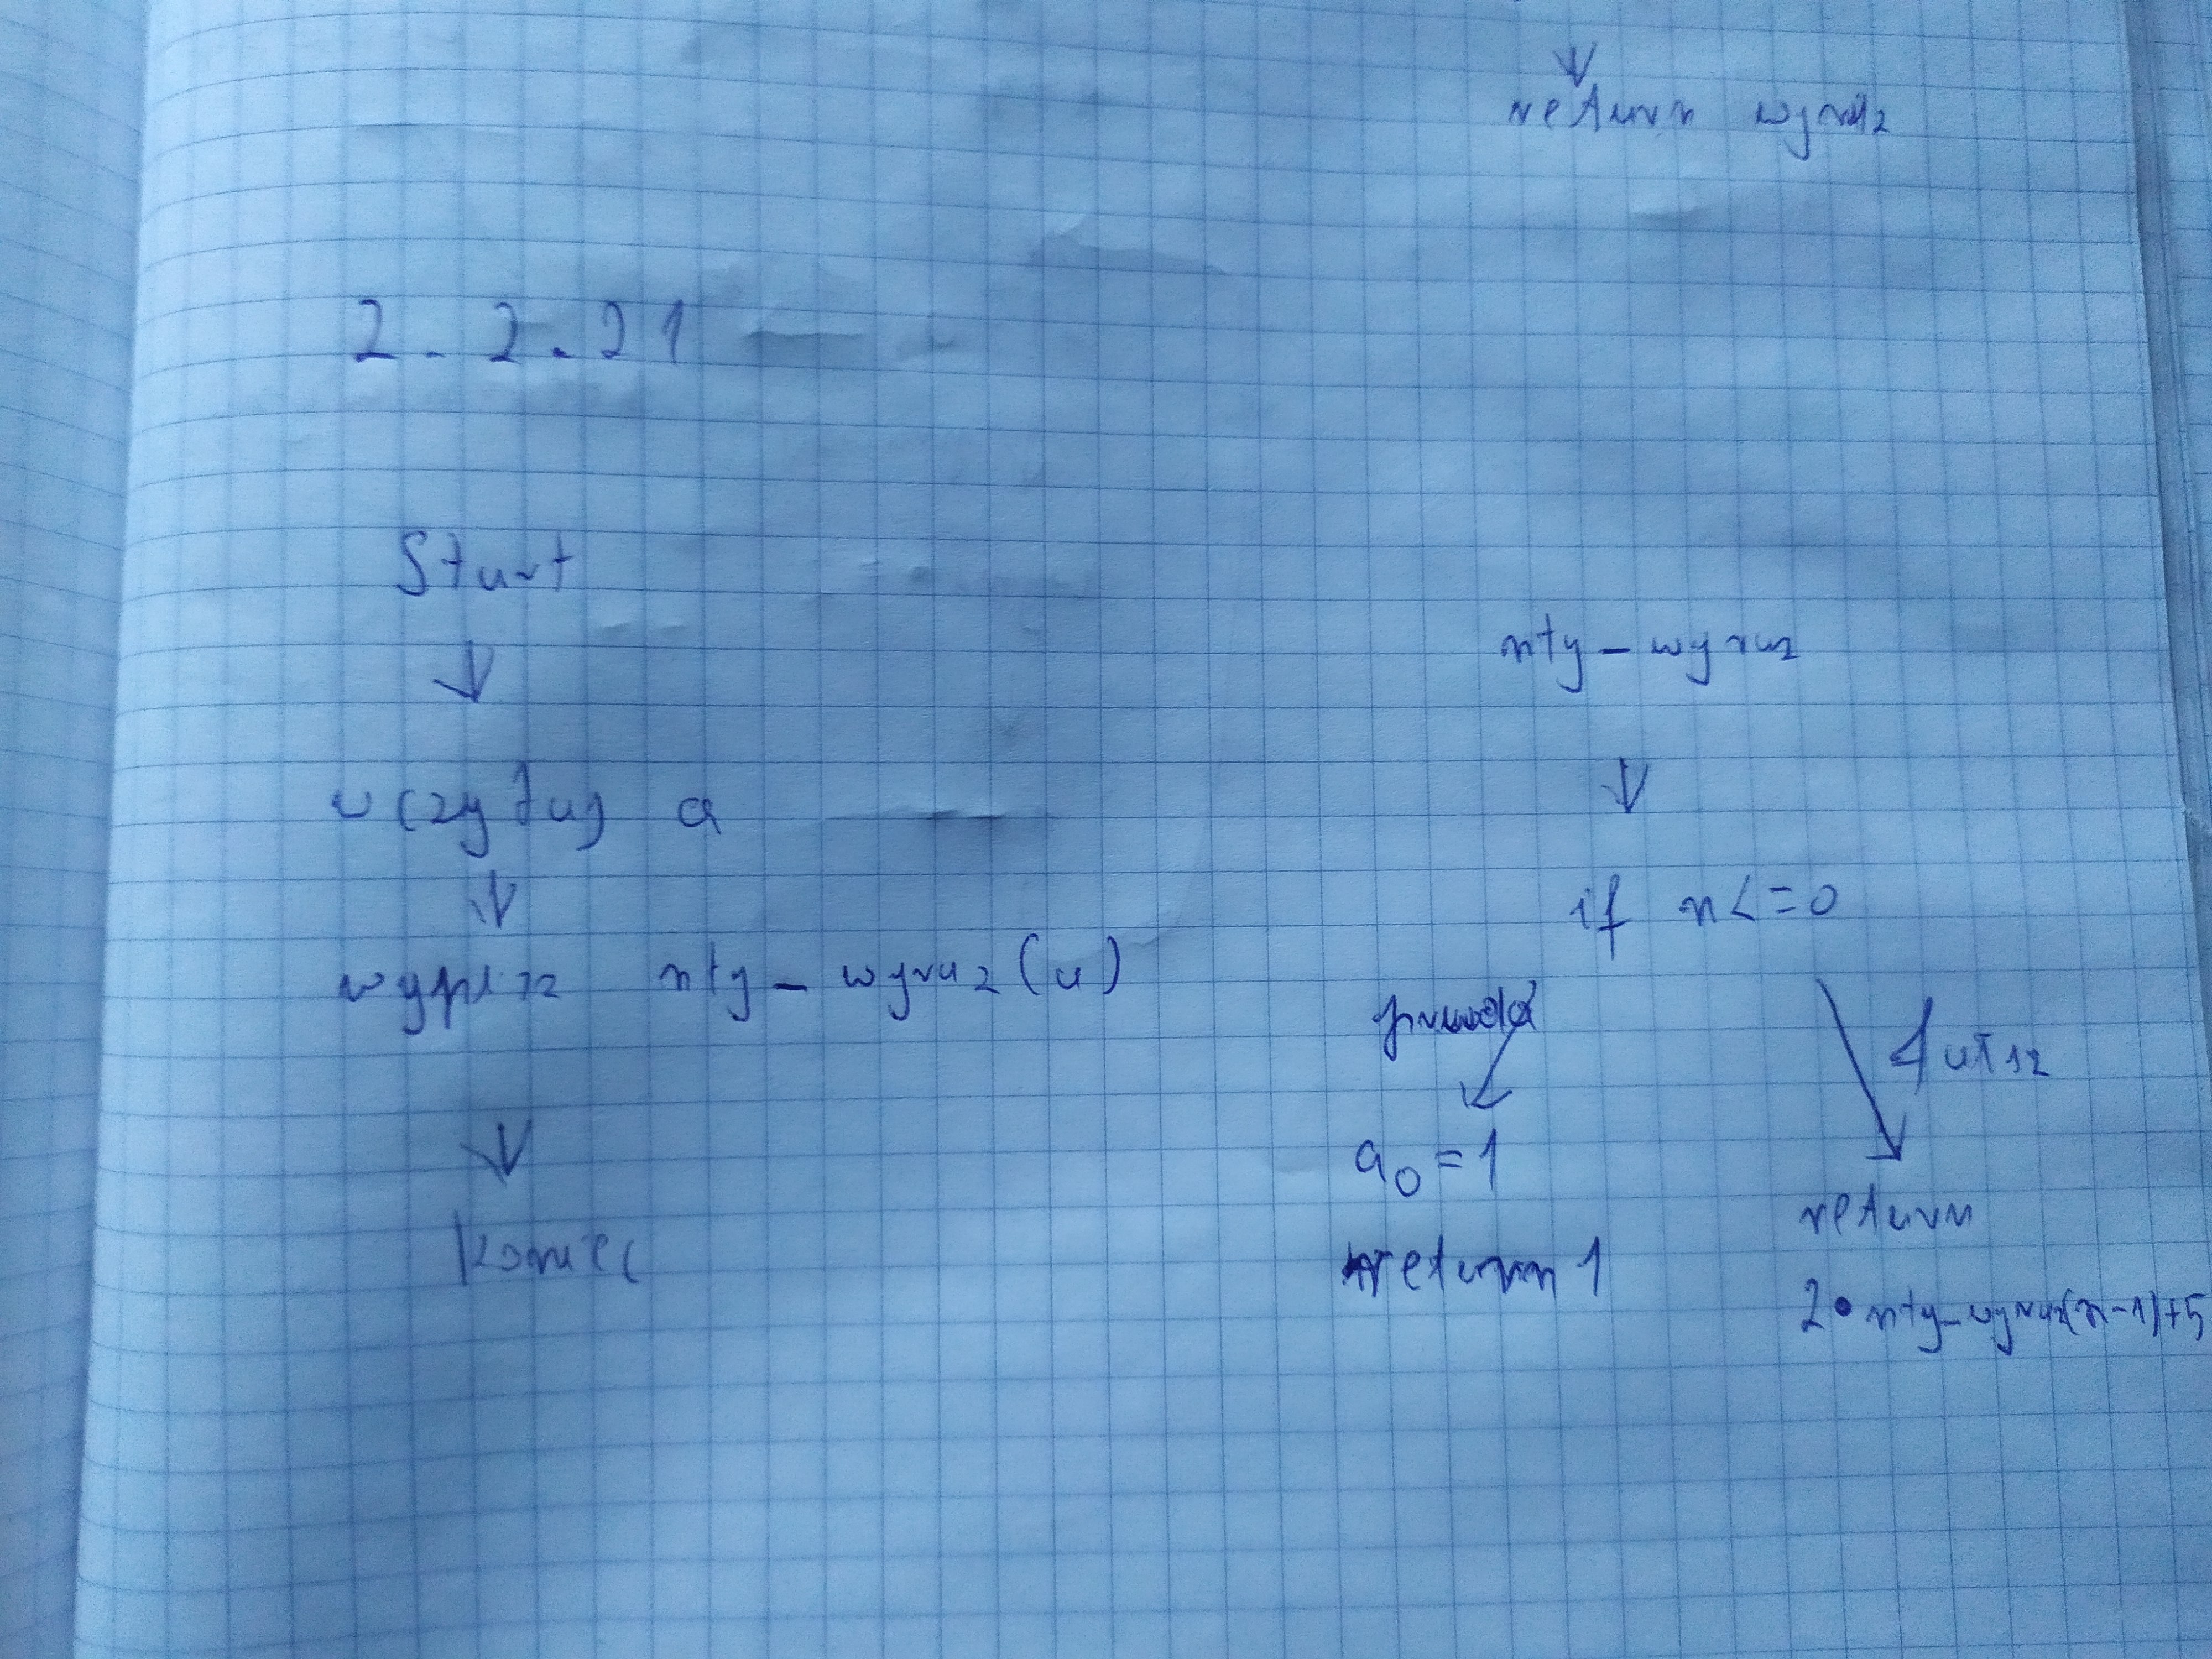 return wyraz
2.2.21
Start
wczytaj a
wypisz nty_wyraz(a)
Koniec
nty_wyraz
if n<=0
prawda
fałsz
a₀=1
return 1
return
2•nty_wyraz(n-1)+5